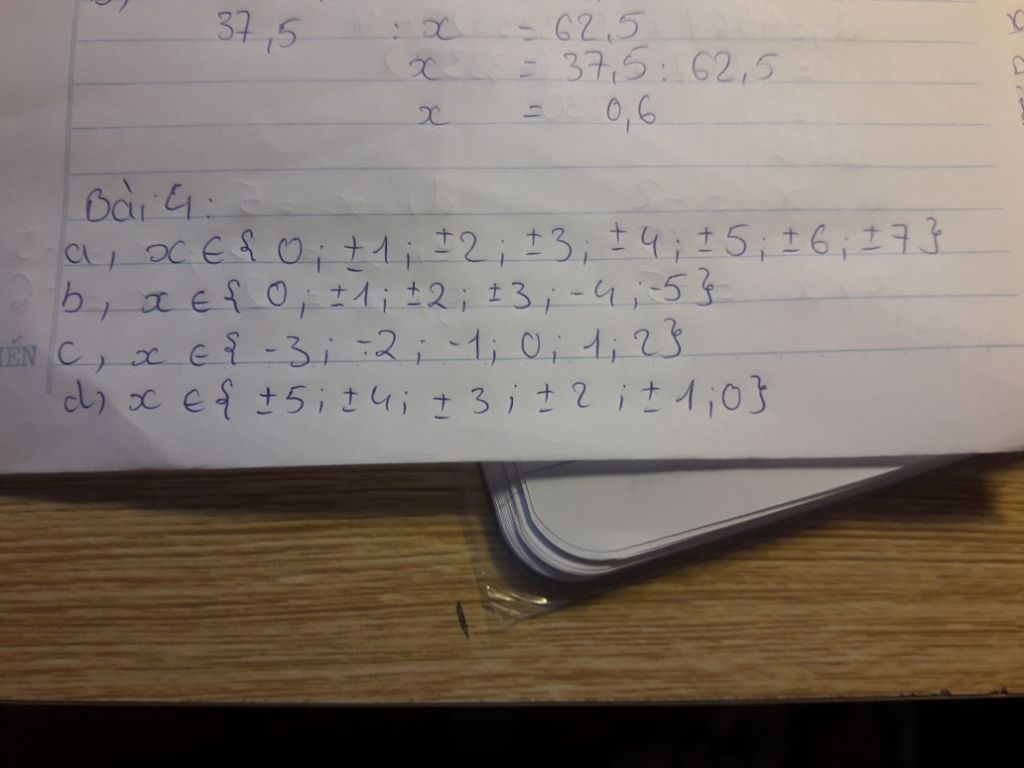 37,5 : x = 62,5
x = 37,5 : 62,5
x = 0,6
Bài 4:
a, x ∈ { 0 ; ±1 ; ±2 ; ±3 ; ±4 ; ±5 ; ±6 ; ±7 }
b, x ∈ { 0 ; ±1 ; ±2 ; ±3 ; -4 ; -5 }
c, x ∈ { -3 ; -2 ; -1 ; 0 ; 1 ; 2 }
d, x ∈ { ±5 ; ±4 ; ±3 ; ±2 ; ±1 ; 0 }